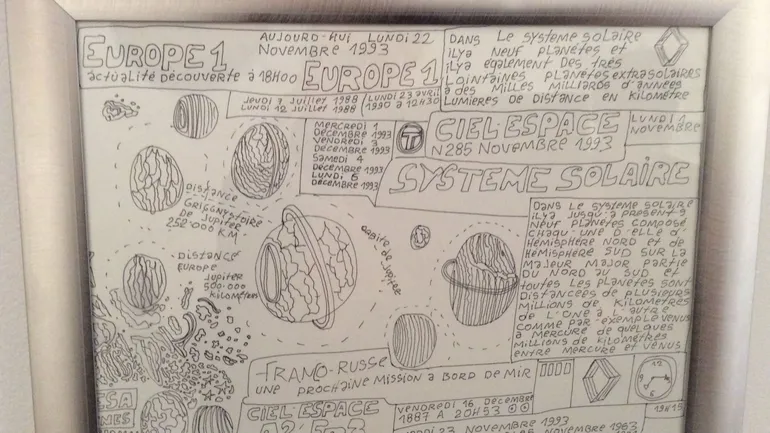 EUROPE 1
actualité découverte à 18H00
AUJOURD-HUI LUNDI 22
NOVEMBRE 1993
EUROPE 1
DANS LE SYSTEME SOLAIRE
ILYA NEUF PLANÈTES ET
ILYA ÉGALEMENT DES TRÈS
LOINTAINES PLANÈTES EXTRASOLAIRES
A DES MILLES MILLIARDS D'ANNÉES
LUMIERES DE DISTANCE EN KILOMÈTRE
JEUDI 7 JUILLET 1988
LUNDI 12 JUILLET 1988
LUNDI 23 AVRIL
1990 à 12H30
MERCREDI 1
DÉCEMBRE 1993
VENDREDI 3
DÉCEMBRE 1993
SAMEDI 4
DÉCEMBRE 1993
LUNDI 6
DÉCEMBRE 1993
T
CIEL-ESPACE
N285 NOVEMBRE 1993
LUNDI 1
NOVEMBRE
SYSTEME SOLAIRE
DISTANCE
DE JUPITER
252·000 KM
DISTANCE
EUROPE
JUPITER
500·000
KILOMÈTRES
orbite de Jupiter
DANS LE SYSTÈME SOLAIRE
ILYA JUSQU'A PRÉSENT 9
NEUF PLANÈTES COMPOSÉ
CHAQU'UNE D'ELLE D'
HEMISPHÈRE NORD ET DE
HEMISPHÈRE SUD SUR LA
MAJEUR MAJOR PARTIE
DU NORD AU SUD ET
TOUTES LES PLANÈTES SONT
DISTANCÉES DE PLUSIEURS
MILLIONS DE KILOMÈTRES
DE L'UNE A L'AUTRE
COMME PAR EXEMPLE VENUS
A MERCURE DE QUELQUES
MILLIONS DE KILOMÈTRES
ENTRE MERCURE ET VENUS
FRANCO-RUSSE
UNE PROCHAINE MISSION A BORD DE MIR
12
6
19H15
ESA
CIEL·ESPACE
VENDREDI 16 DÉCEMBRE
1887 A 20H53
23 NOVEMBRE 1993